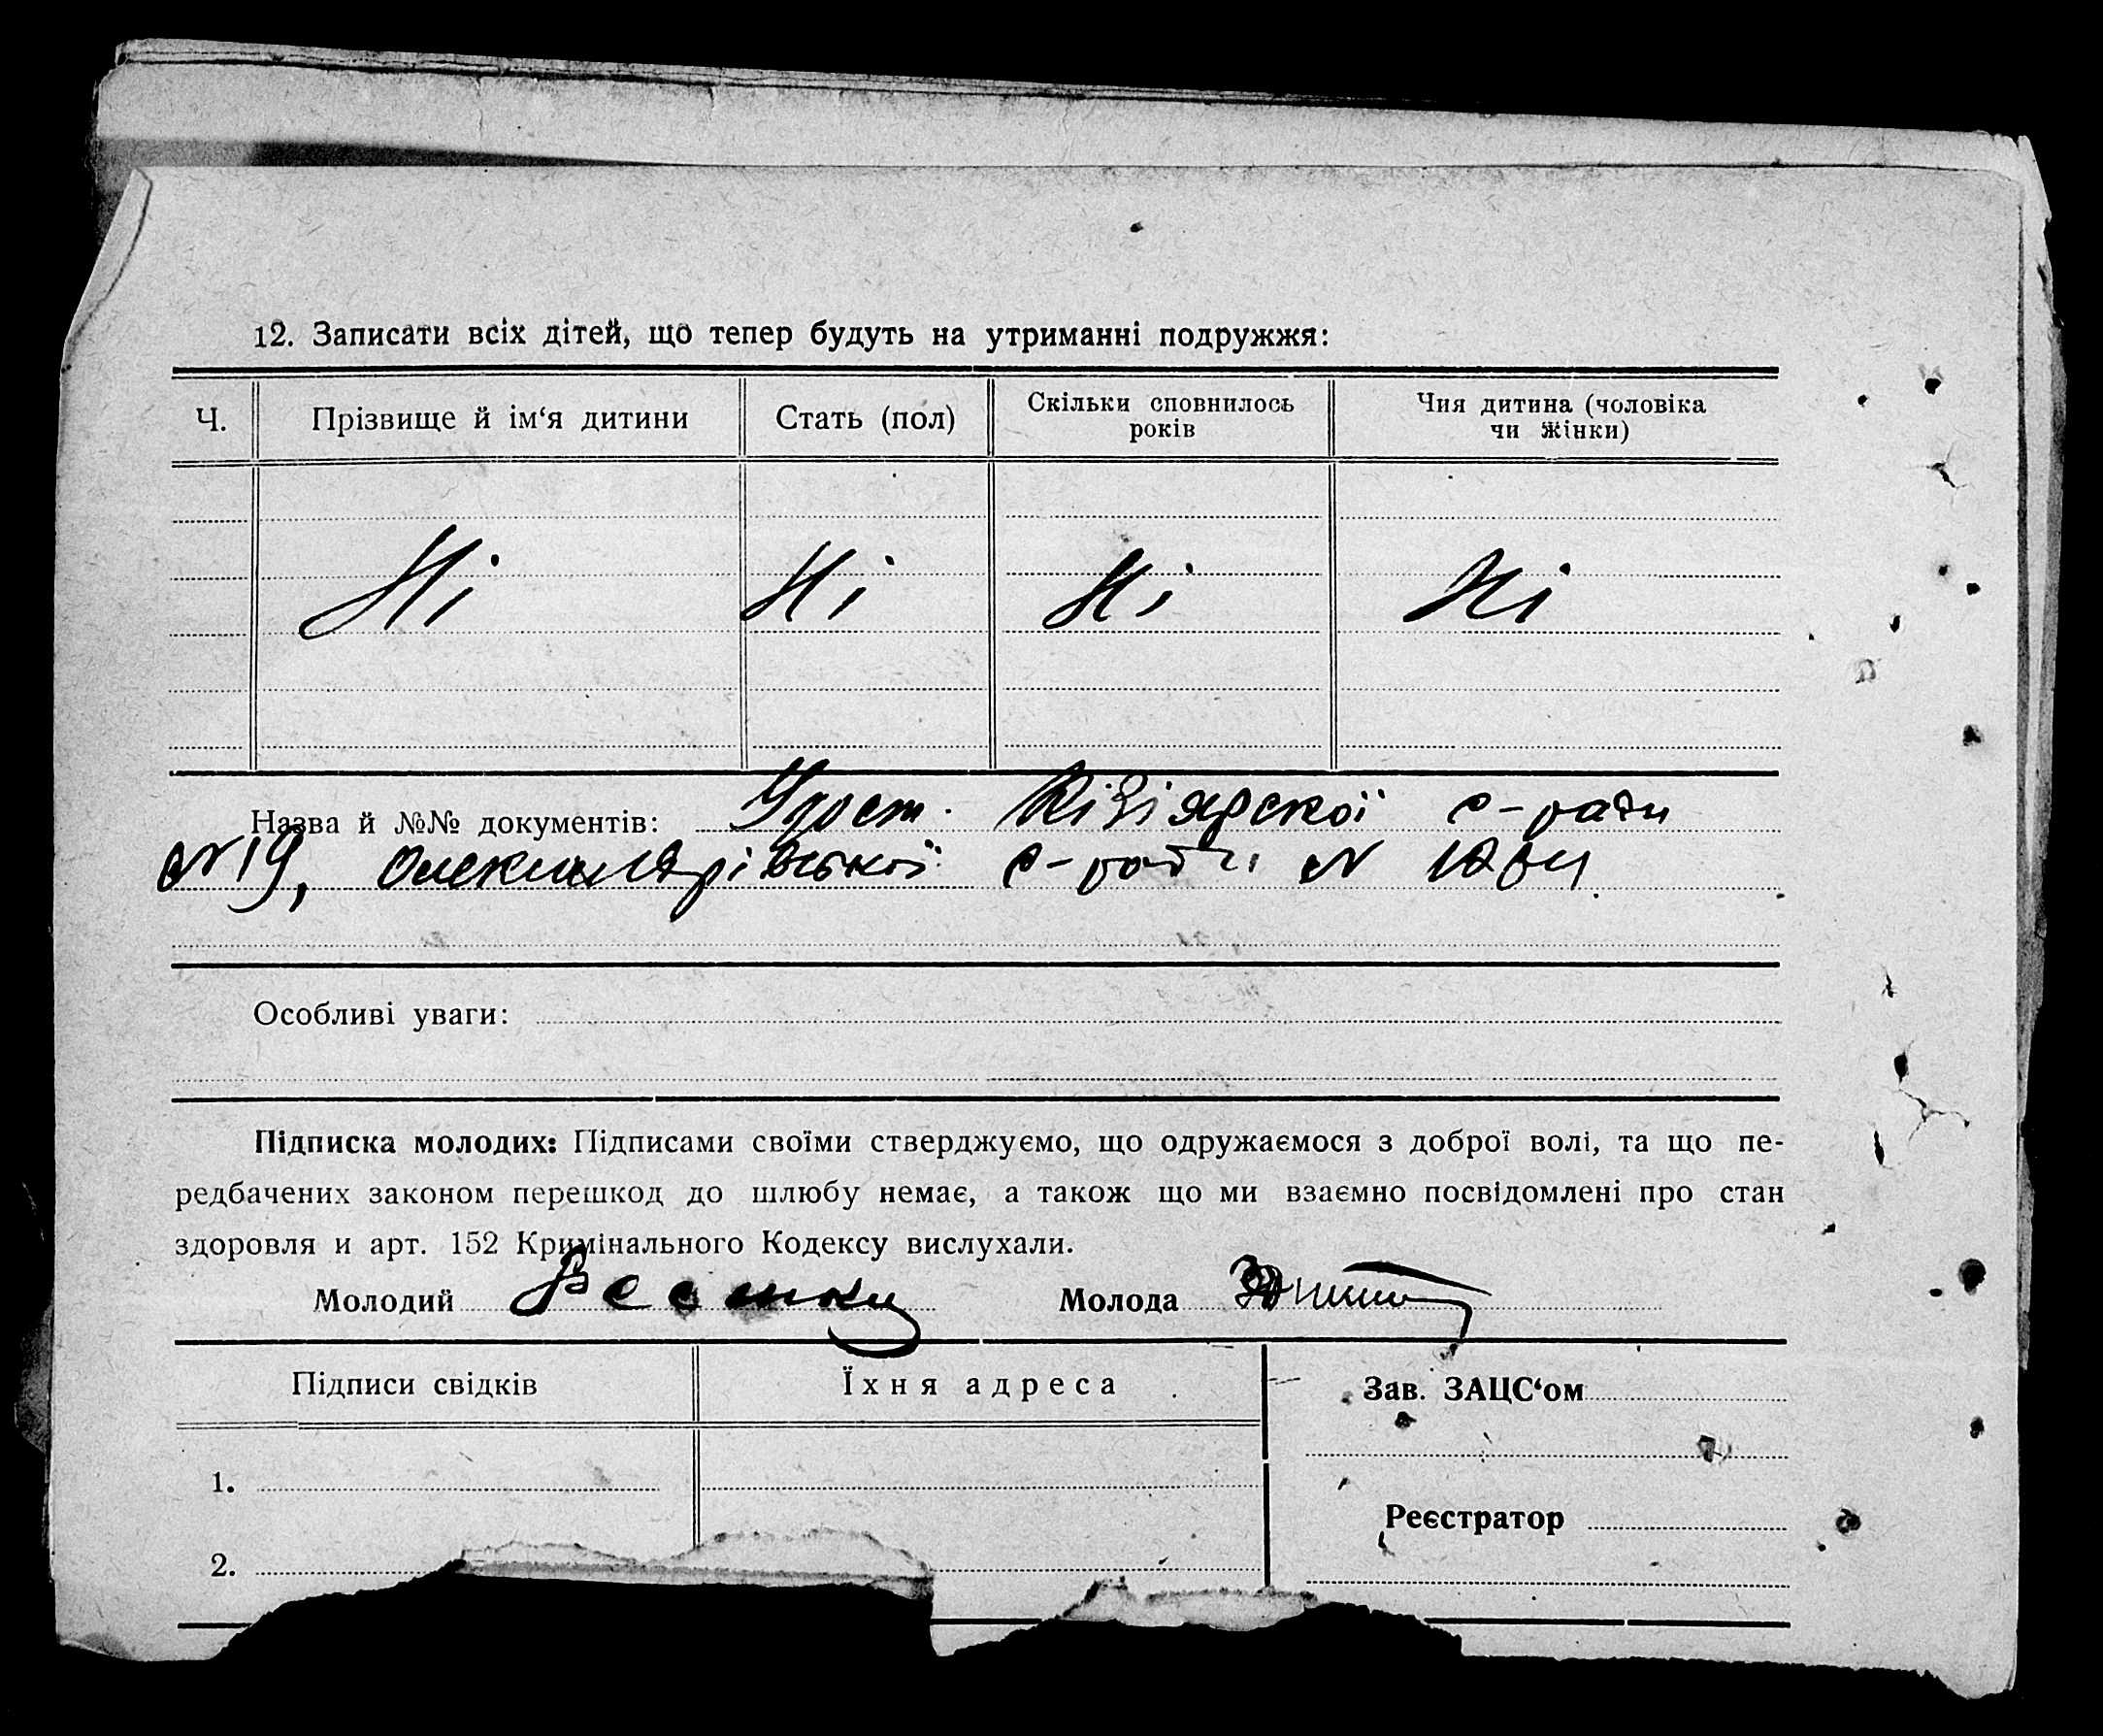 12. Записати всіх дітей, що тепер будуть на утриманні подружжя:
Ч. Прізвище й ім‘я дитини Стать (пол) Скільки сповнилось років Чия дитина (чоловіка чи жінки)
Ні Ні Ні Ні
Назва й №№ документів: Удост. Кізіярскої с-ради
№ 19, Олександрівської с-ради №
Особливі уваги:
Підписка молодих: Підписами своїми стверджуємо, що одружаємося з доброї волі, та що пе-
редбачених законом перешкод до шлюбу немає, а також що ми взаємно посвідомлені про стан
здоровля и арт. 152 Кримінального Кодексу вислухали.
Молодий Молода
Підписи свідків Їхня адреса Зав. ЗАЦС‘ом
1.
Реєстратор
2.